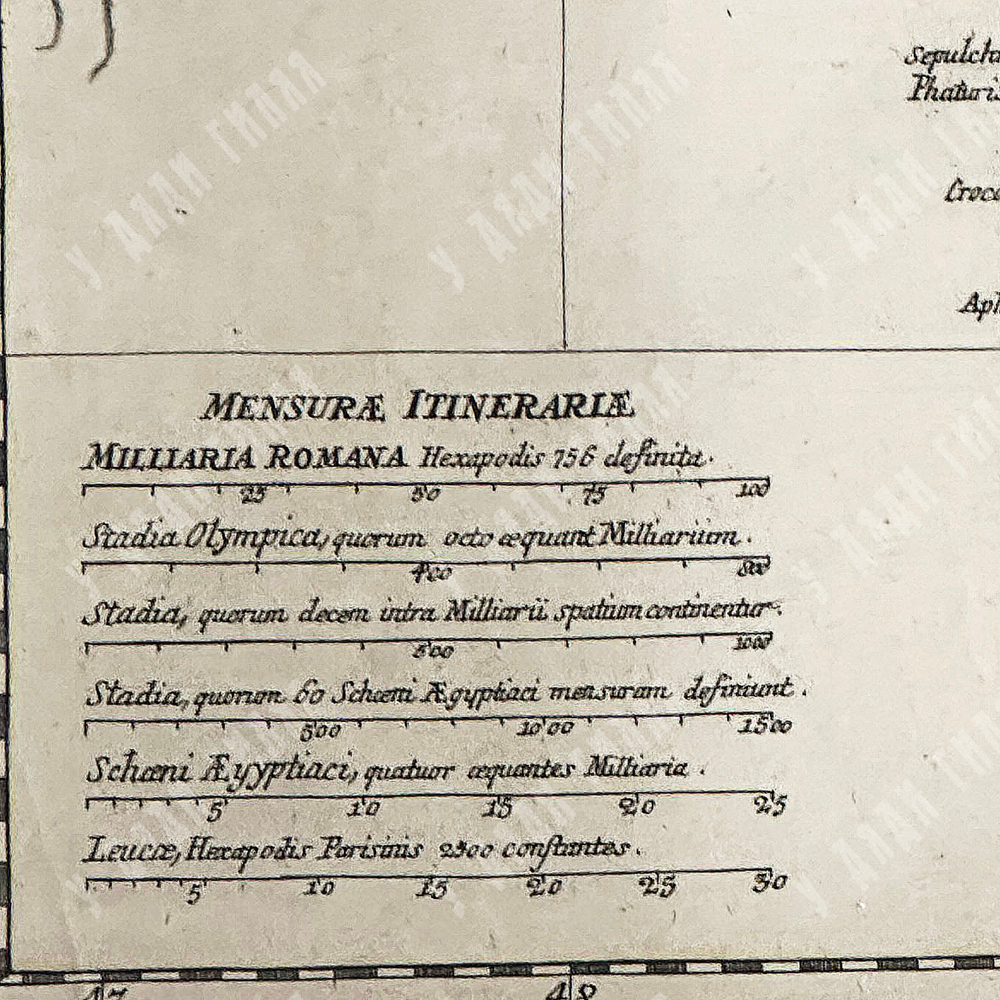 Phaturis
MENSURÆ ITINERARIÆ
MILLIARIA ROMANA Hexapodis 756 definita.
25 50 75 100
Stadia Olympica, quorum octo æquant Milliarium.
400 800
Stadia, quorum decem intra Milliarii spatium continentur.
500 1000
Stadia, quorum 60 Schœni Ægyptiaci mensuram definiunt.
500 1000 1500
Schœni Ægyptiaci, quatuor æquantes Milliaria.
5 10 15 20 25
Leucæ, Hexapodis Parisinis 2500 constantes.
5 10 15 20 25 30
47 48
У ДЯДИ ГИЛЯЯ